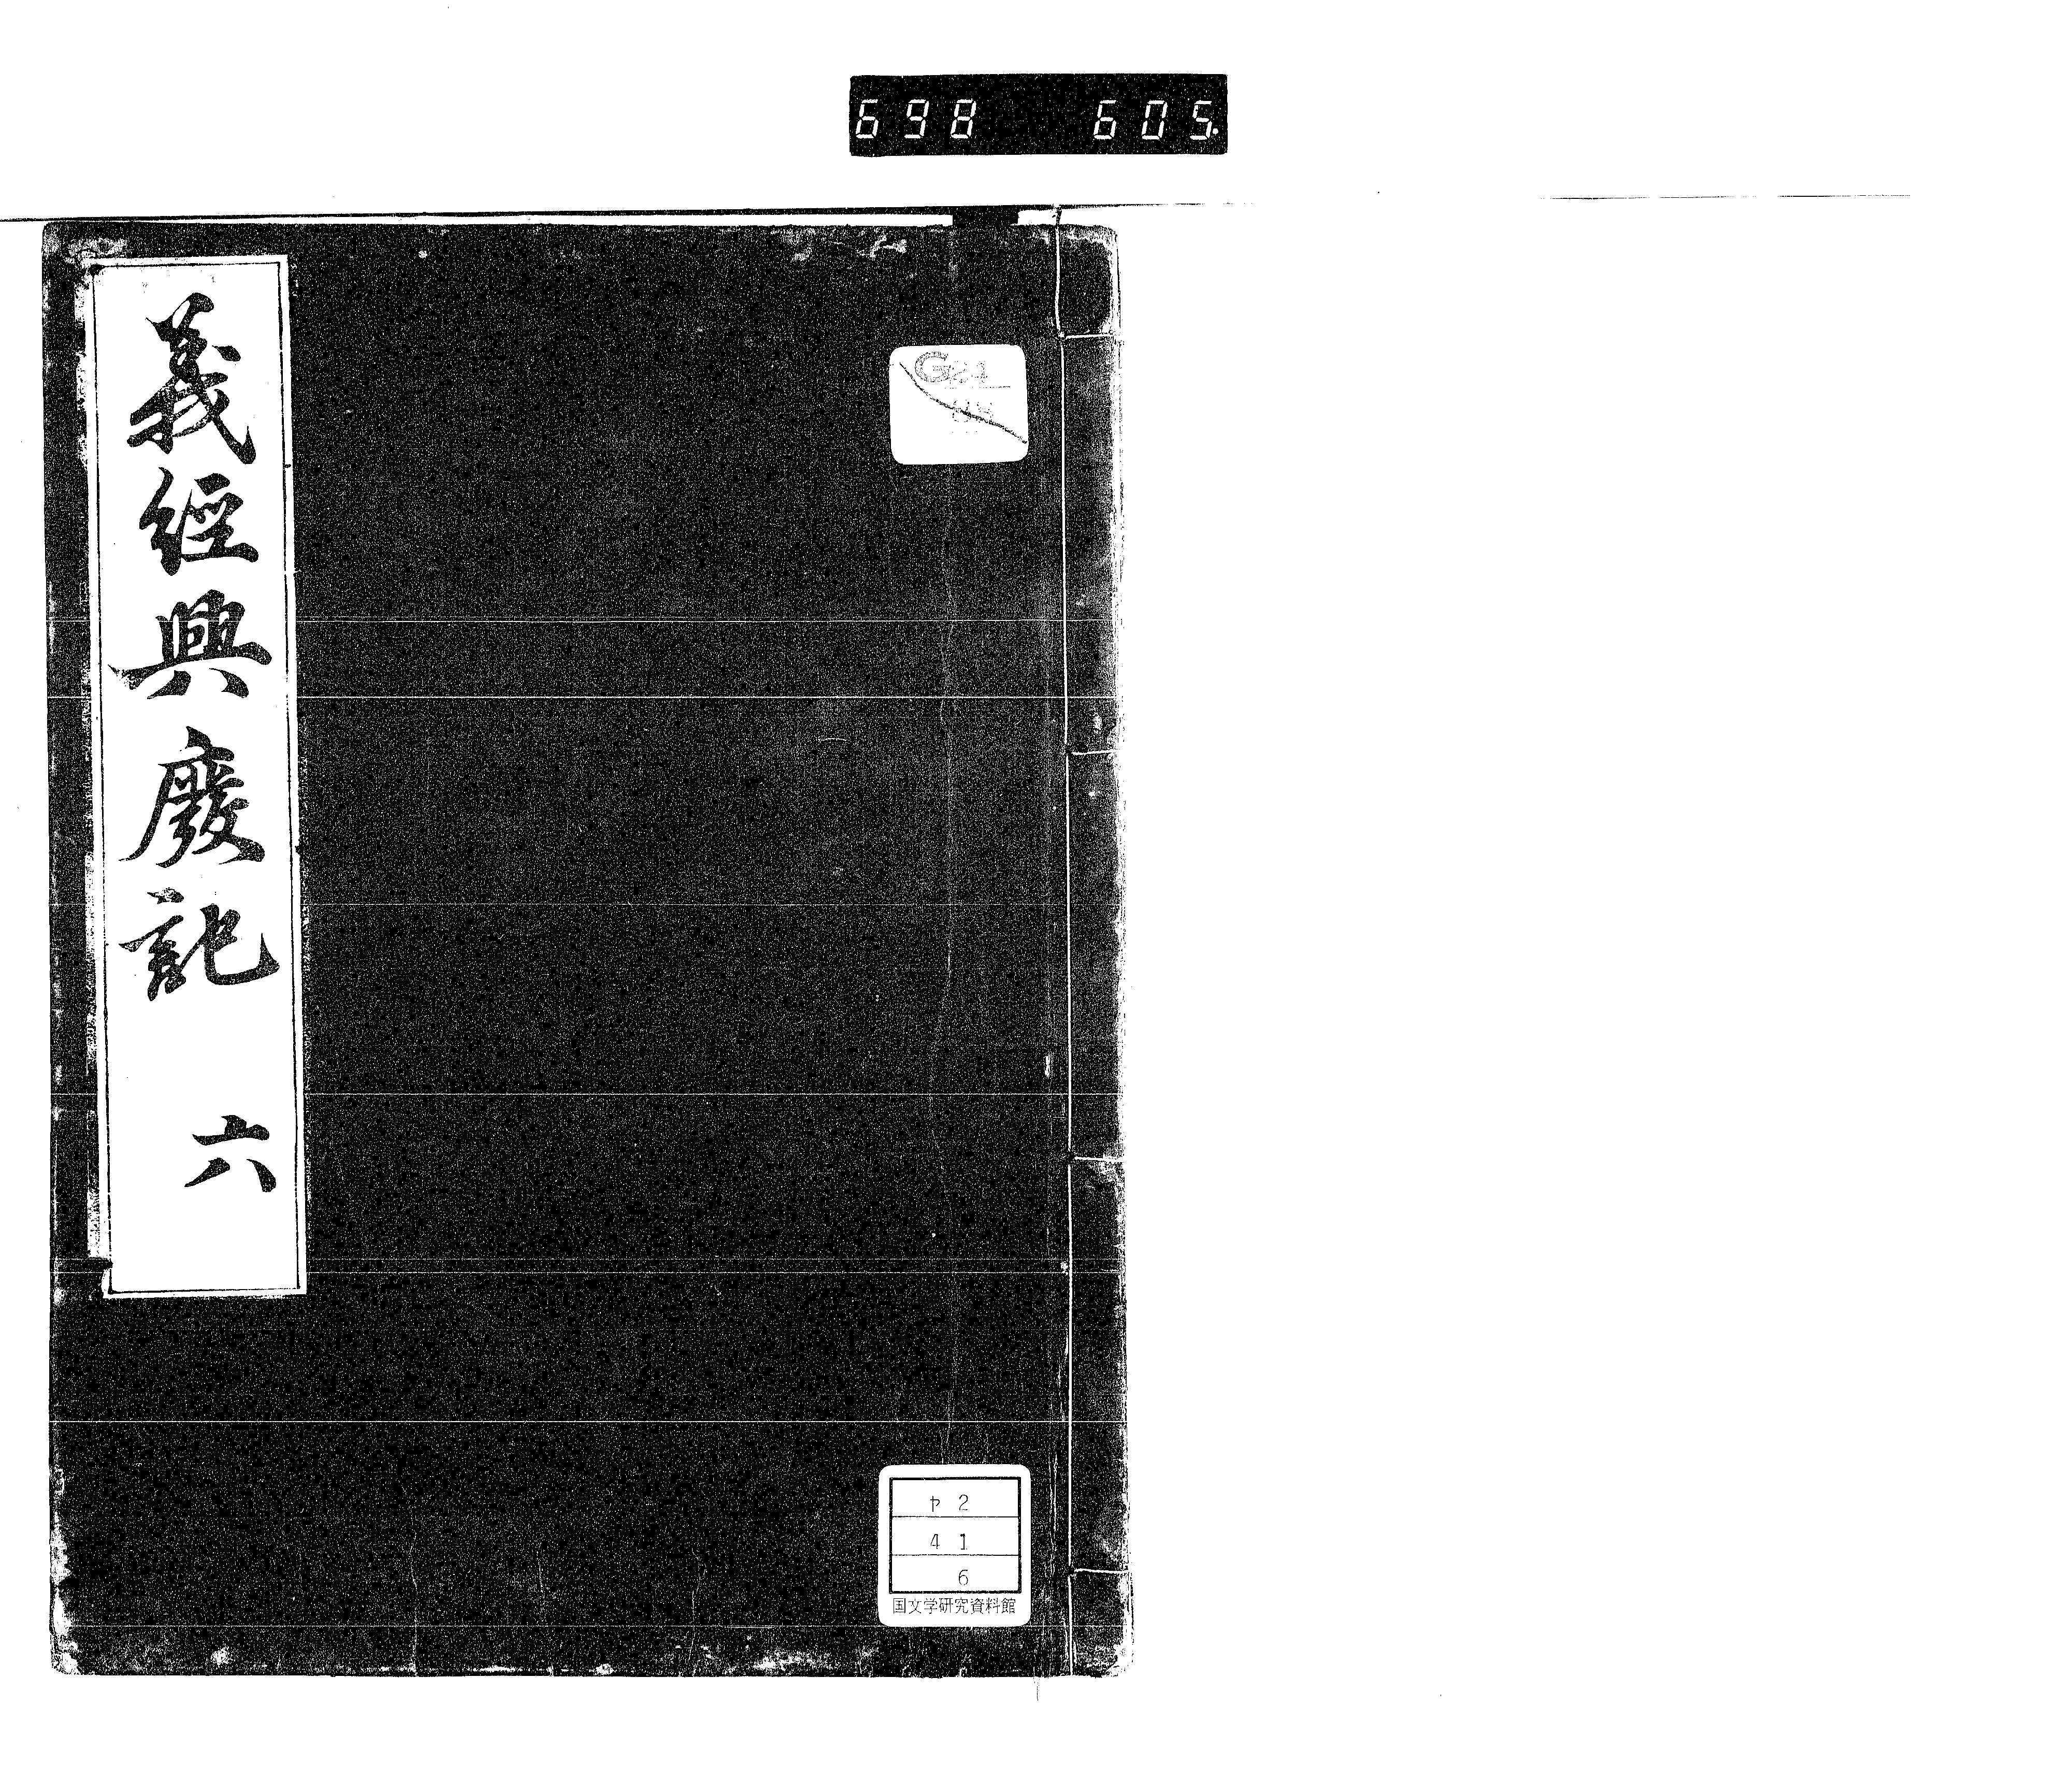 698 605.
義經興廢記 六
ヤ2
41
6
国文学研究資料館